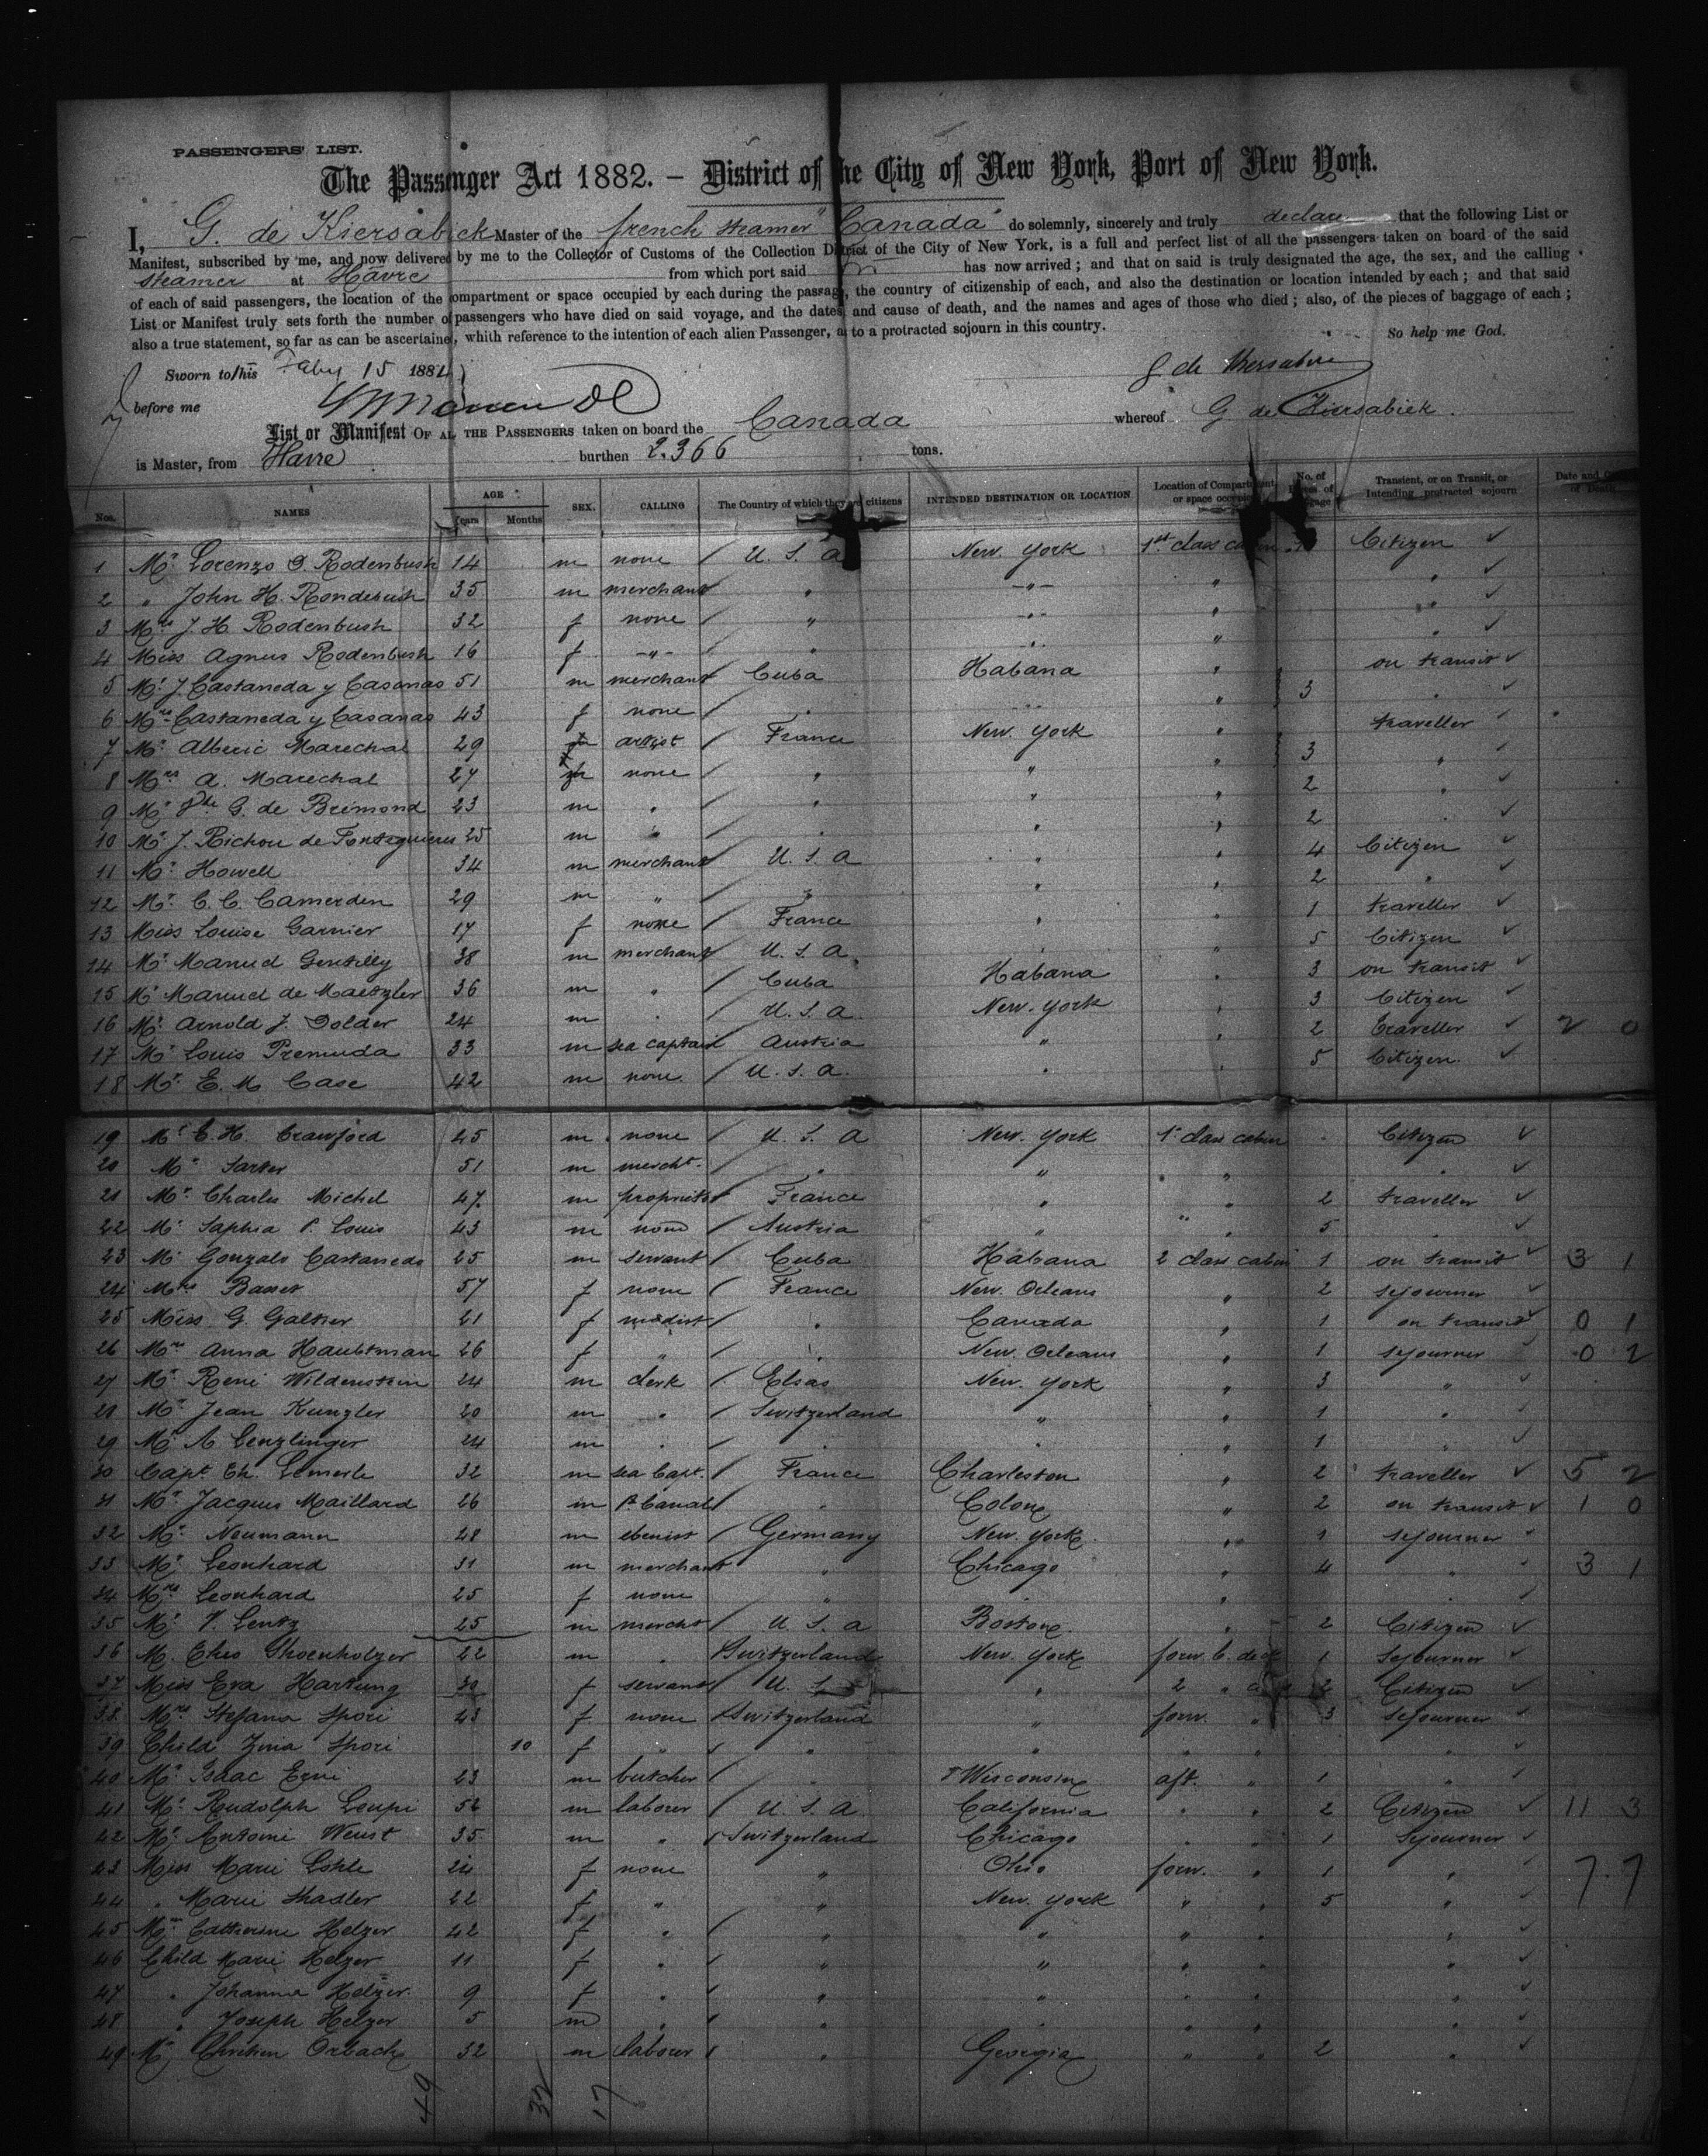 PASSENGERS' LIST.
The Passenger Act 1882. – District of the City of New York, Port of New York.
I, G. de Kiersabick Master of the french steamer "Canada" do solemnly, sincerely and truly declare that the following List or
Manifest, subscribed by me, and now delivered by me to the Collector of Customs of the Collection District of the City of New York, is a full and perfect list of all the passengers taken on board of the said
steamer at Havre from which port said has now arrived; and that on said is truly designated the age, the sex, and the calling
of each of said passengers, the location of the compartment or space occupied by each during the passage, the country of citizenship of each, and also the destination or location intended by each; and that said
List or Manifest truly sets forth the number of passengers who have died on said voyage, and the dates and cause of death, and the names and ages of those who died; also, of the pieces of baggage of each;
also a true statement, so far as can be ascertained, whith reference to the intention of each alien Passenger, as to a protracted sojourn in this country. So help me God.
Sworn to/his Feby 15 1884
before me
List or Manifest OF ALL THE PASSENGERS taken on board the Canada whereof G de Kiersabiek
is Master, from Havre burthen 2.366 tons.
Nos. NAMES AGE Years Months SEX. CALLING The Country of which they are citizens INTENDED DESTINATION OR LOCATION Location of Compartment or space occupied No. of Transient, or on Transit, or Intending protracted sojourn Date and
1 Mr Lorenzo D. Rodenbush 14 m none U. S. A New York 1st class cabin Citizen
2 " John H. Rondebush 35 m merchant " -"- " "
3 Mrs J. H Rodenbush 32 f none " -"- " "
4 Miss Agnus Rodenbush 16 f -"- " " " "
5 Mr J. Castaneda y Casanas 51 m merchant Cuba Habana " 3 on transit
6 Mrs Castaneda y Casanas 43 f none " " " "
7 Mr Alberic Marechal 29 artist France New York " 3 traveller
8 Mrs A. Marechal 27 none " " " "
9 Mr G. de Brémond 23 m " " " " 2 "
10 Mr J. Richou de Fontequieres 25 m " " " " 2 "
11 Mr Howell 34 m merchant U. S. A " " 4 Citizen
12 Mr C. C. Camerden 29 m " " " " 2 "
13 Miss Louise Garnier 17 f none France " " 1 traveller
14 Mr Manuel Gentilly 38 m merchant U. S. A. " " 5 Citizen
15 Mr Manuel de Maetzler 36 m " Cuba Habana " 3 on transit
16 Mr Arnold J. Dolder 24 m " U. S. A. New York " 3 Citizen
17 Mr Louis Premuda 33 m sea captain Austria " " 2 traveller 2 0
18 Mr E. M Case 42 m none U. S. A. " " 5 Citizen
19 Mr C. H. Crawford 45 m none U. S. A New York 1st class cabin Citizen
20 Mr Sarter 51 m mercht. " " " " "
21 Mr Charles Michel 47 m propriet France " " " 2 traveller
22 Mr Saphia P. Louis 43 m none Austria " " " 5 "
23 Mr Gonzalo Castaneda 25 m servant Cuba Habana 2 class cabin 1 on transit 3 1
24 Mrs Basset 57 f none France New Orleans " 2 sejourner
25 Miss G. Galtier 21 f modist " Canada " 1 on transit 0 1
26 Mrs Anna Haubtman 26 f " " New Orleans " 1 sejourner 0 2
27 Mr René Wildenstein 24 m clerk Elsas New York " 3 "
28 Mr Jean Kunzler 20 m " Switzerland " " 1 "
29 Mr A Lenzlinger 24 m " " " " 1 "
30 Capt. Ch. Lemerle 32 m sea Capt. France Charleston " 2 traveller 5 2
31 Mr Jacques Maillard 26 m P. Canal " Colon " 2 on transit 1 0
32 Mr Neumann 48 m ebenist Germany New York " 1 sejourner
33 Mr Leonhard 31 m merchant " Chicago " 4 " 3 1
34 Mrs Leonhard 25 f none " " " "
35 Mr V. Lentz 25 m mercht U. S. A Boston " 2 Citizen
36 M. Theo Shoenholzer 22 m " Switzerland New York forw. b. deck 1 Sejourner
37 Miss Eva Hartung 30 f servant U. S. " 2 " 2 Citizen
38 Mrs Stefana Spori 43 f none Switzerland " forw. " 3 Sejourner
39 Child Zina Spori 10 f " " " " " "
40 Mr Isaac Egui 23 m butcher " Wisconsin aft. " 1 "
41 Mr Rudolph Leupi 52 m laborer U. S. A California " " 2 Citizen 11 3
42 Mr Antoine Weust 35 m " Switzerland Chicago " " 1 Sejourner
43 Miss Marie Eshle 24 f none " Ohio forw. " 1 " 7 7
44 " Marie Shadler 22 f " " New York " " 5 "
45 Mrs Catherine Helzer 42 f " " " " " "
46 Child Marie Helzer 11 f " " " " " "
47 " Johanna Helzer 9 f " " " " " "
48 " Joseph Helzer 5 m " " " " " "
49 Mr Chretien Orbach 32 m laborer " Georgia " " 2 "
49 32 17